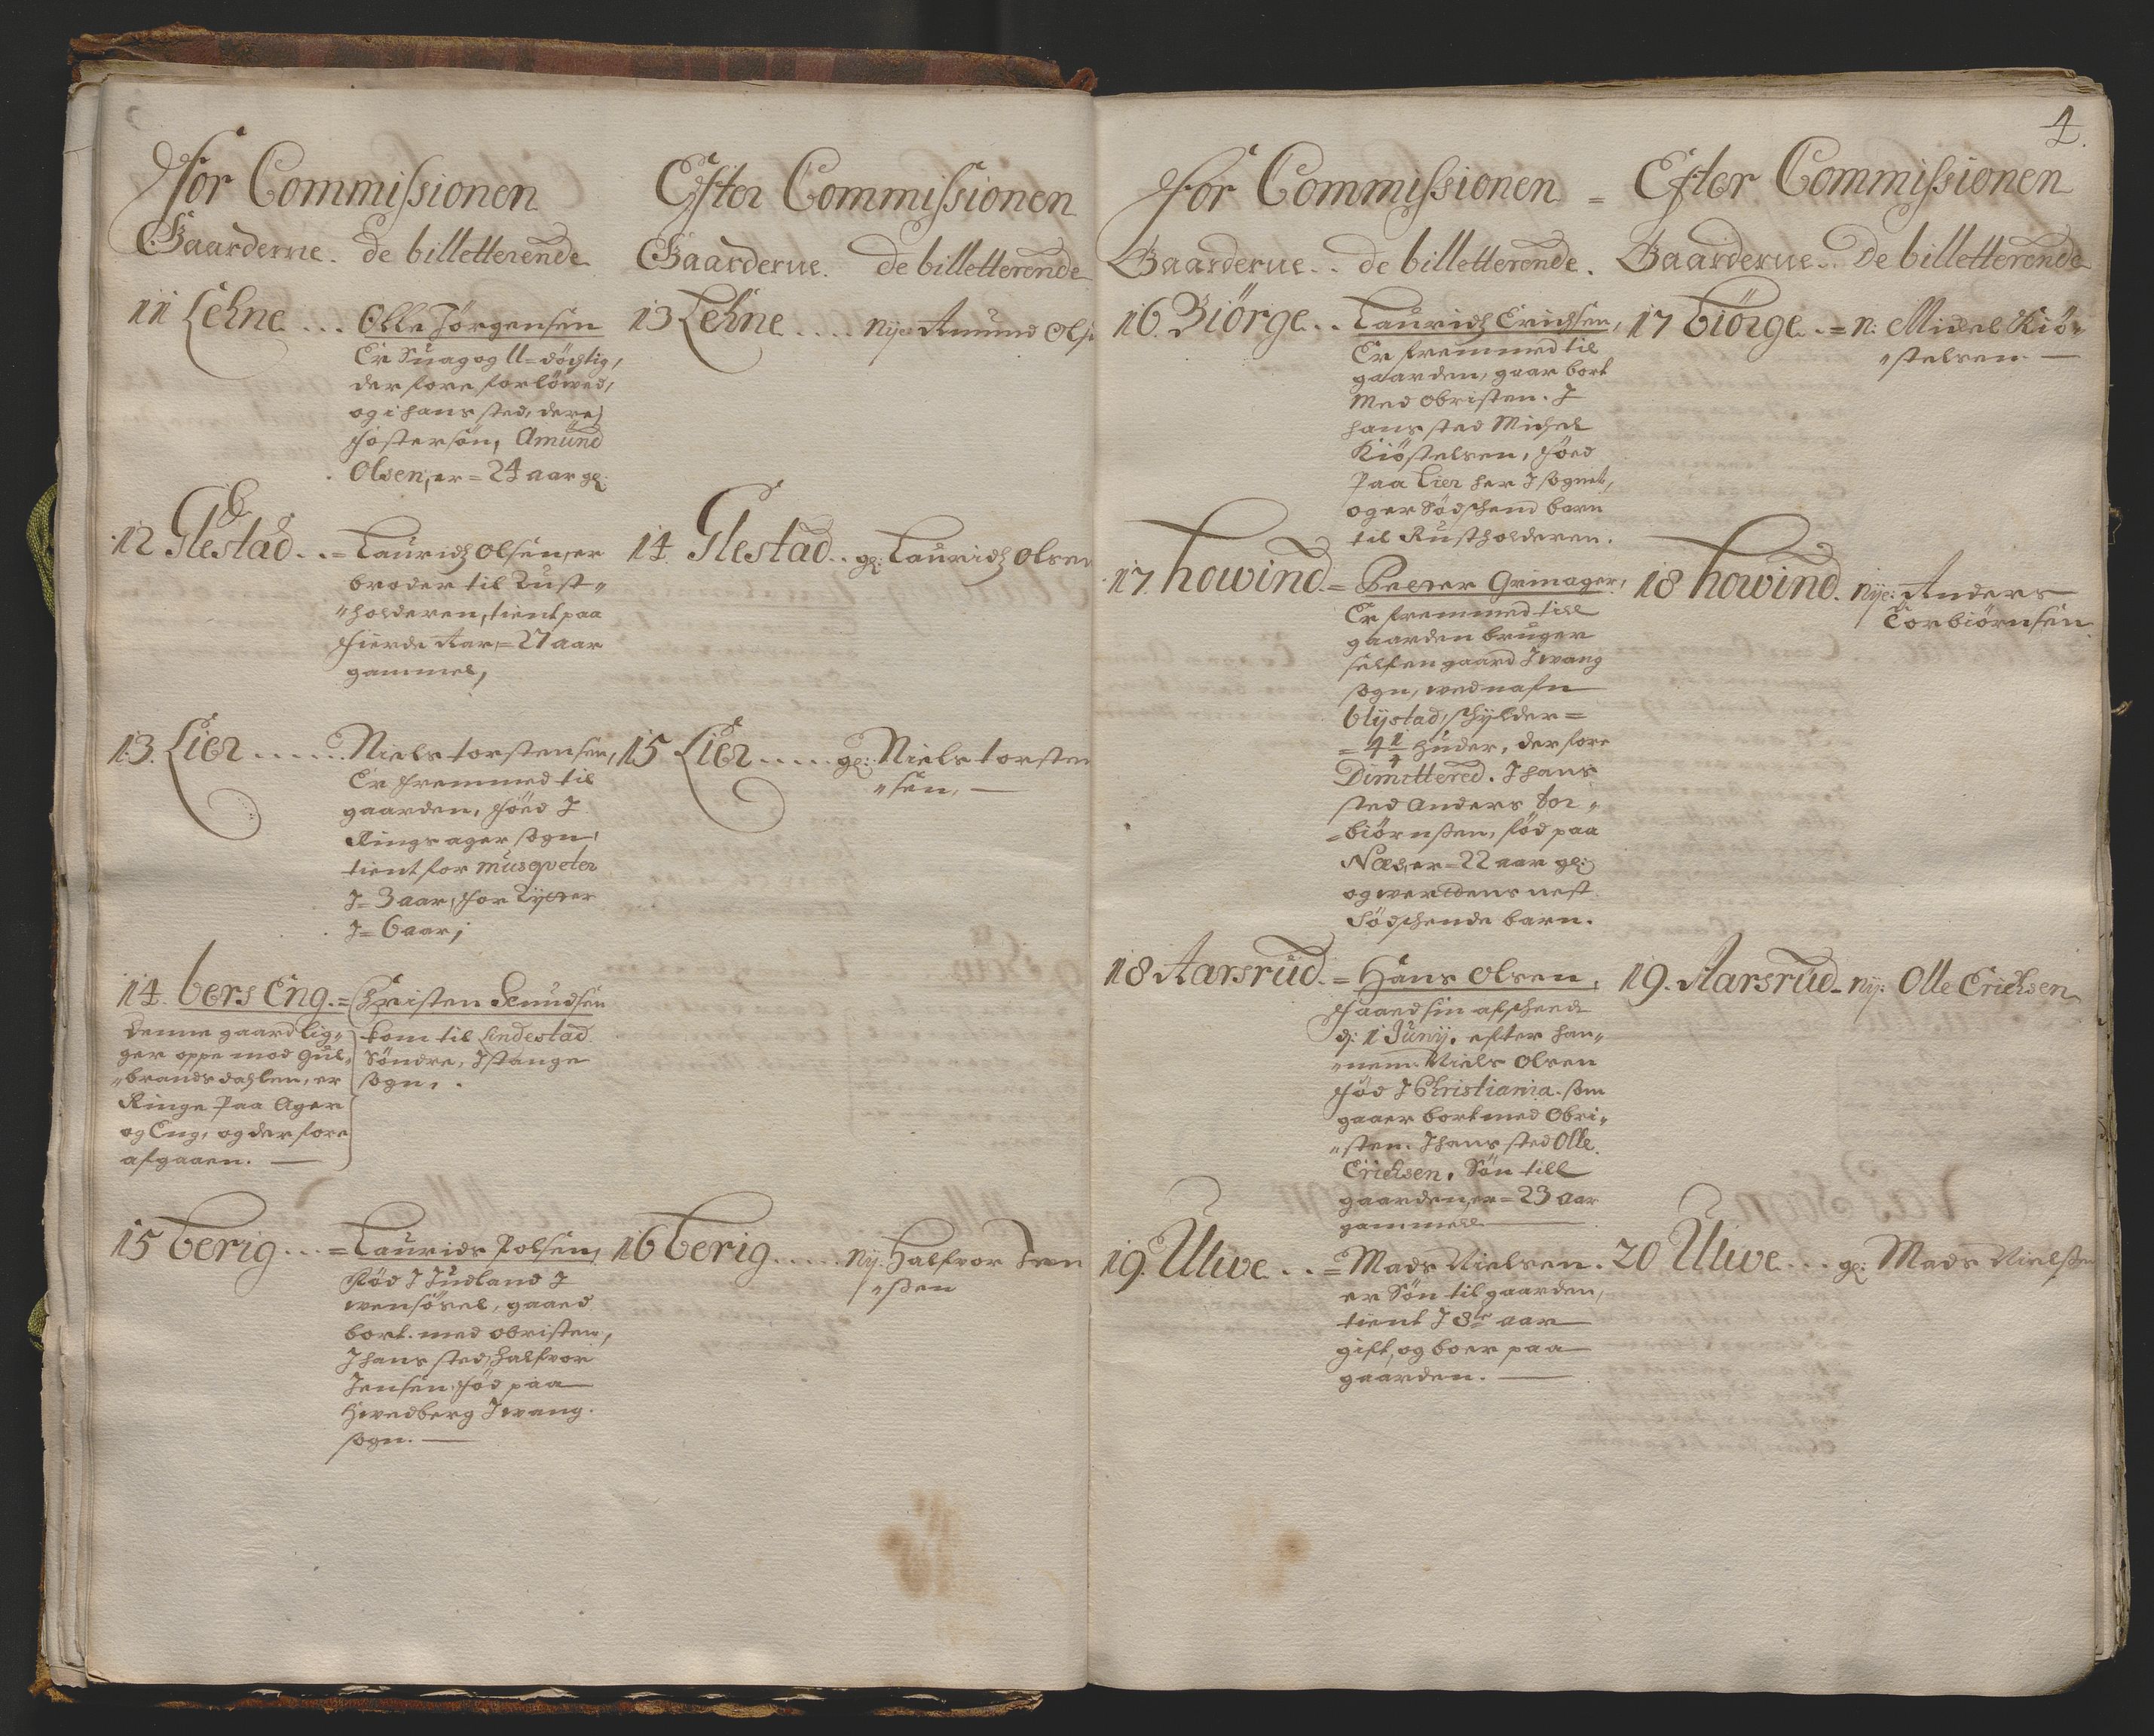 4.
For Commissionen
Gaarderne. de billetterende
11 Lehne ... Olle Jörgensen
Er Suag og U=döchtig,
der fore forlöwed,
og i hans sted, deres
fostersön, Amund
Olsen, er = 24 aar gl:
12 Glestad ..= Lauridz Olsen, er
broder til Rust-
holderen, tient paa
fierde Aar, = 27 aar
gammel,
13. Lier ...... Niels torstensen,
Er fremmed til
gaarden, föed I
Ringsager sogn,
tient for musqveter
I = 3 aar, for Rytter
I = 6 aar;
14. bers Eng. = Christen Knudsen
denne gaard lig-
ger oppe mod Gul-
brandsdahlen, er
Ringe paa Ager
og Eng, og der fore
afgaaen. —
kom til Lindestad
Söndre, I stange
sogn, .
15 berig ...= Laurids Polsen,
Född I Judland I
wensösel, gaaed
bort med obristen,
I hans sted, Halfvor
Jensen, föd paa
Hwedberg I wang
sogn. —
Efter Commissionen
Gaarderne. de billetterende
13 Lehne .... nye Amund Ols
14. Glestad .. gl: Lauridz Olsen
15 Lier ..... gl: Niels torsten
sen. —
16 berig ..... ny: Halfvor Jen
ssen
For Commissionen =
Gaarderne .. de billetterende.
16. Biörge .. Lauridz Erichsen,
Er fremmed til
gaarden, gaar bort
Med obristen. I
hans sted Michel
Kiöstelsen, föed
Paa Lier her I sognet,
og er Södschend barn
til Rustholderen.
17. howind. = Peter Grimager,
Er fremmed till
gaarden bruger
selfen gaard I wang
sogn, wed nafn
blystad, schylder =
= 4 1/4 Huder, der fore
Dimittered. I hans
sted Anders tor-
biörnssen, föd paa
Næs, er = 22 aar gl:
og werdens nest
Södschende barn.
18 Aarsrud. = Hans Olsen,
faaed sin afscheed
d: 1 Junij. efter han-
nem Niels Olsen
föd I Christiania. som
gaaer bort med Obri-
sten. I hans sted Olle
Erichsen. Sön till
gaarden, er = 23 aar
gammell —
19. Ulwe ..= Mads Nielsen.
er Sön til gaarden,
tient I 8te aar
gift, og boer paa
gaarden. —
Efter Commissionen
Gaarderne .. De billetterende
17 biörge .= n: Michel Kiö-
stelsen —
18 howind. nye: Anders
Torbiörnsen
19. Aarsrud - ny: Olle Erichsen
20 Ulwe ... gl: Mads Nielssen